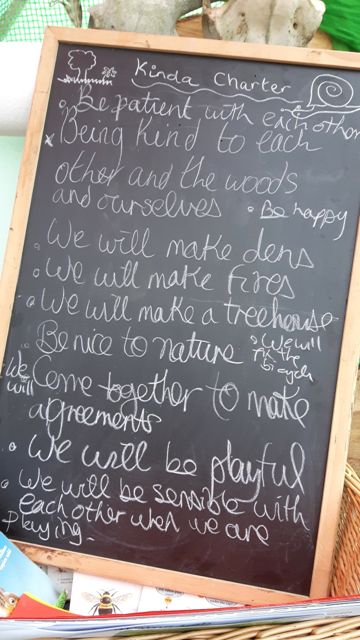 Kinda Charter
• Be patient with each other
x Being Kind to each
other and the woods
and ourselves • Be happy
• We will make dens
• We will make fires
• We will make a treehouse
• Be nice to nature • We will
fix the
bicycle
We will Come together to make
agreements
• We will be playful
• We will be sensible with
each other when we are
playing.